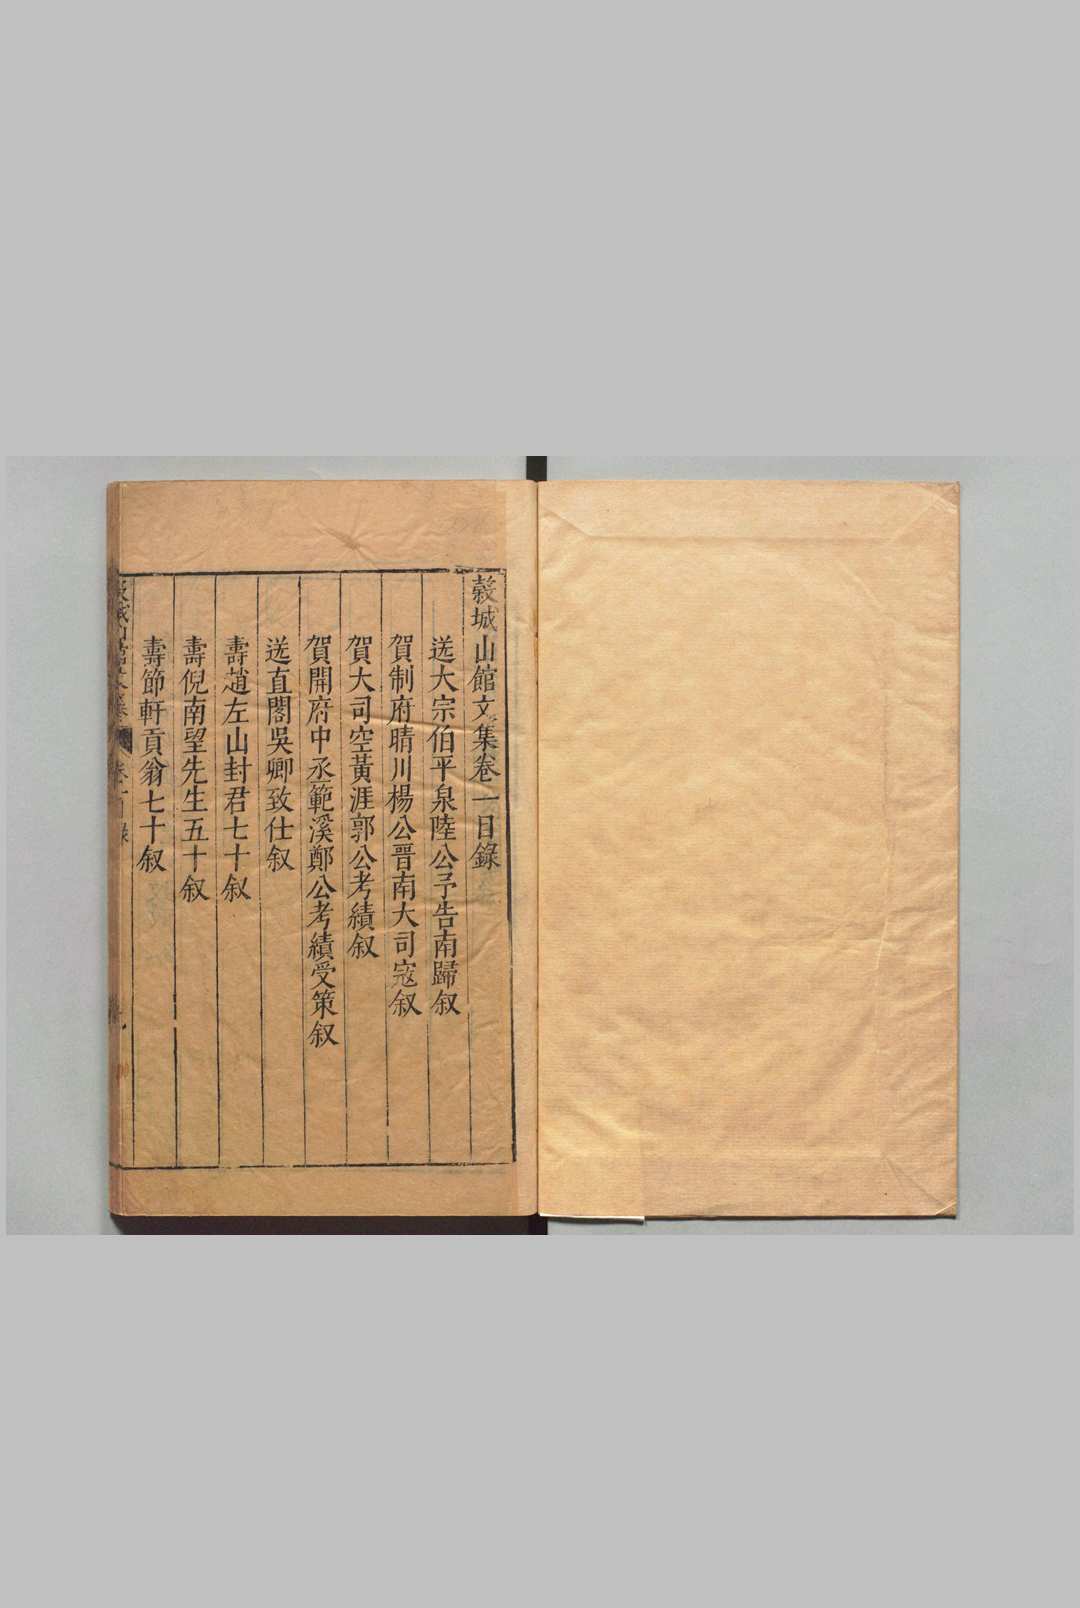 穀城山館文集卷一目錄
送大宗伯平泉陸公予告南歸叙
賀制府晴川楊公晋南大司寇叙
賀大司空黃涯郭公考績叙
賀開府中丞範溪鄭公考績受策叙
送直閣吳卿致仕叙
壽趙左山封君七十叙
壽倪南望先生五十叙
壽節軒貢翁七十叙